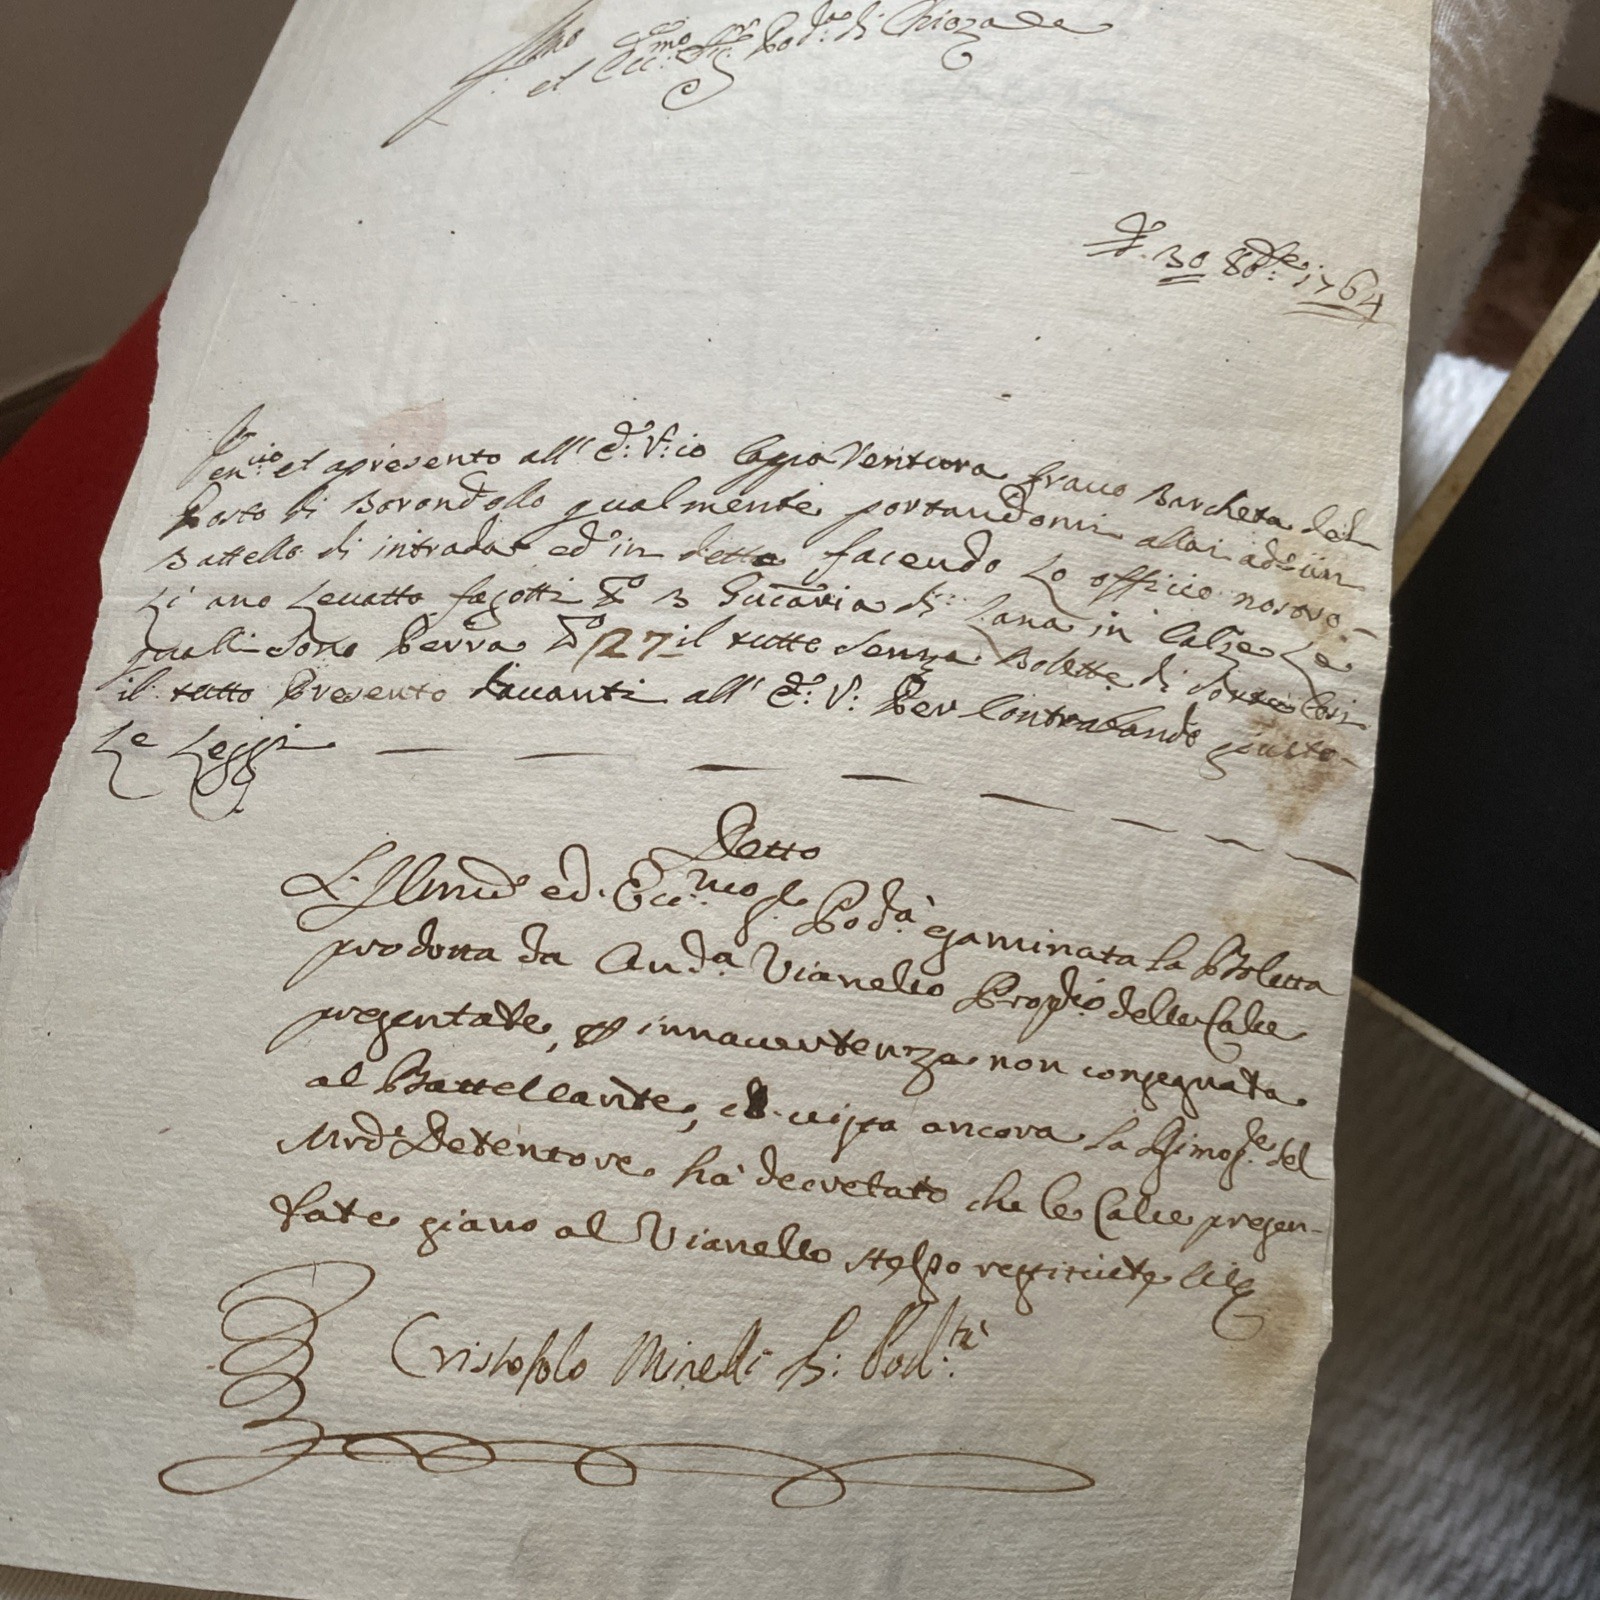 Ill:mo et Ecc:mo Sig:r Pod:à di Chioza
30 8bre: 1764
Ven:io et apresento all' E: V: io Capo Ventura Bravo Barcheta del
Porto di Borondollo qualmente portandomi allai ad'ün
Battello di intrada ed in detto facendo Lo officio nostro
Li ano Levatto fagotti N:o 3 di: Lana in Calze Le
qualli sono Perra N:o 27 il tutto senza Bolette di sorte Cosi
il tutto Presento davanti all' E: V: Per Contrabando justo
Le Leggi
Detto
L'Illmo ed. Ecc:mo S. Podà esaminata la Bolletta
prodotta da And:a Vianello Proprio delle Calce
presentate, p innavertenza non consegnata
al Battellante, e vista ancora la del
Detentore hà decretato che le Calce presen-
tate siano al Vianello stesso restituite
Cristofolo Minelli Pod: